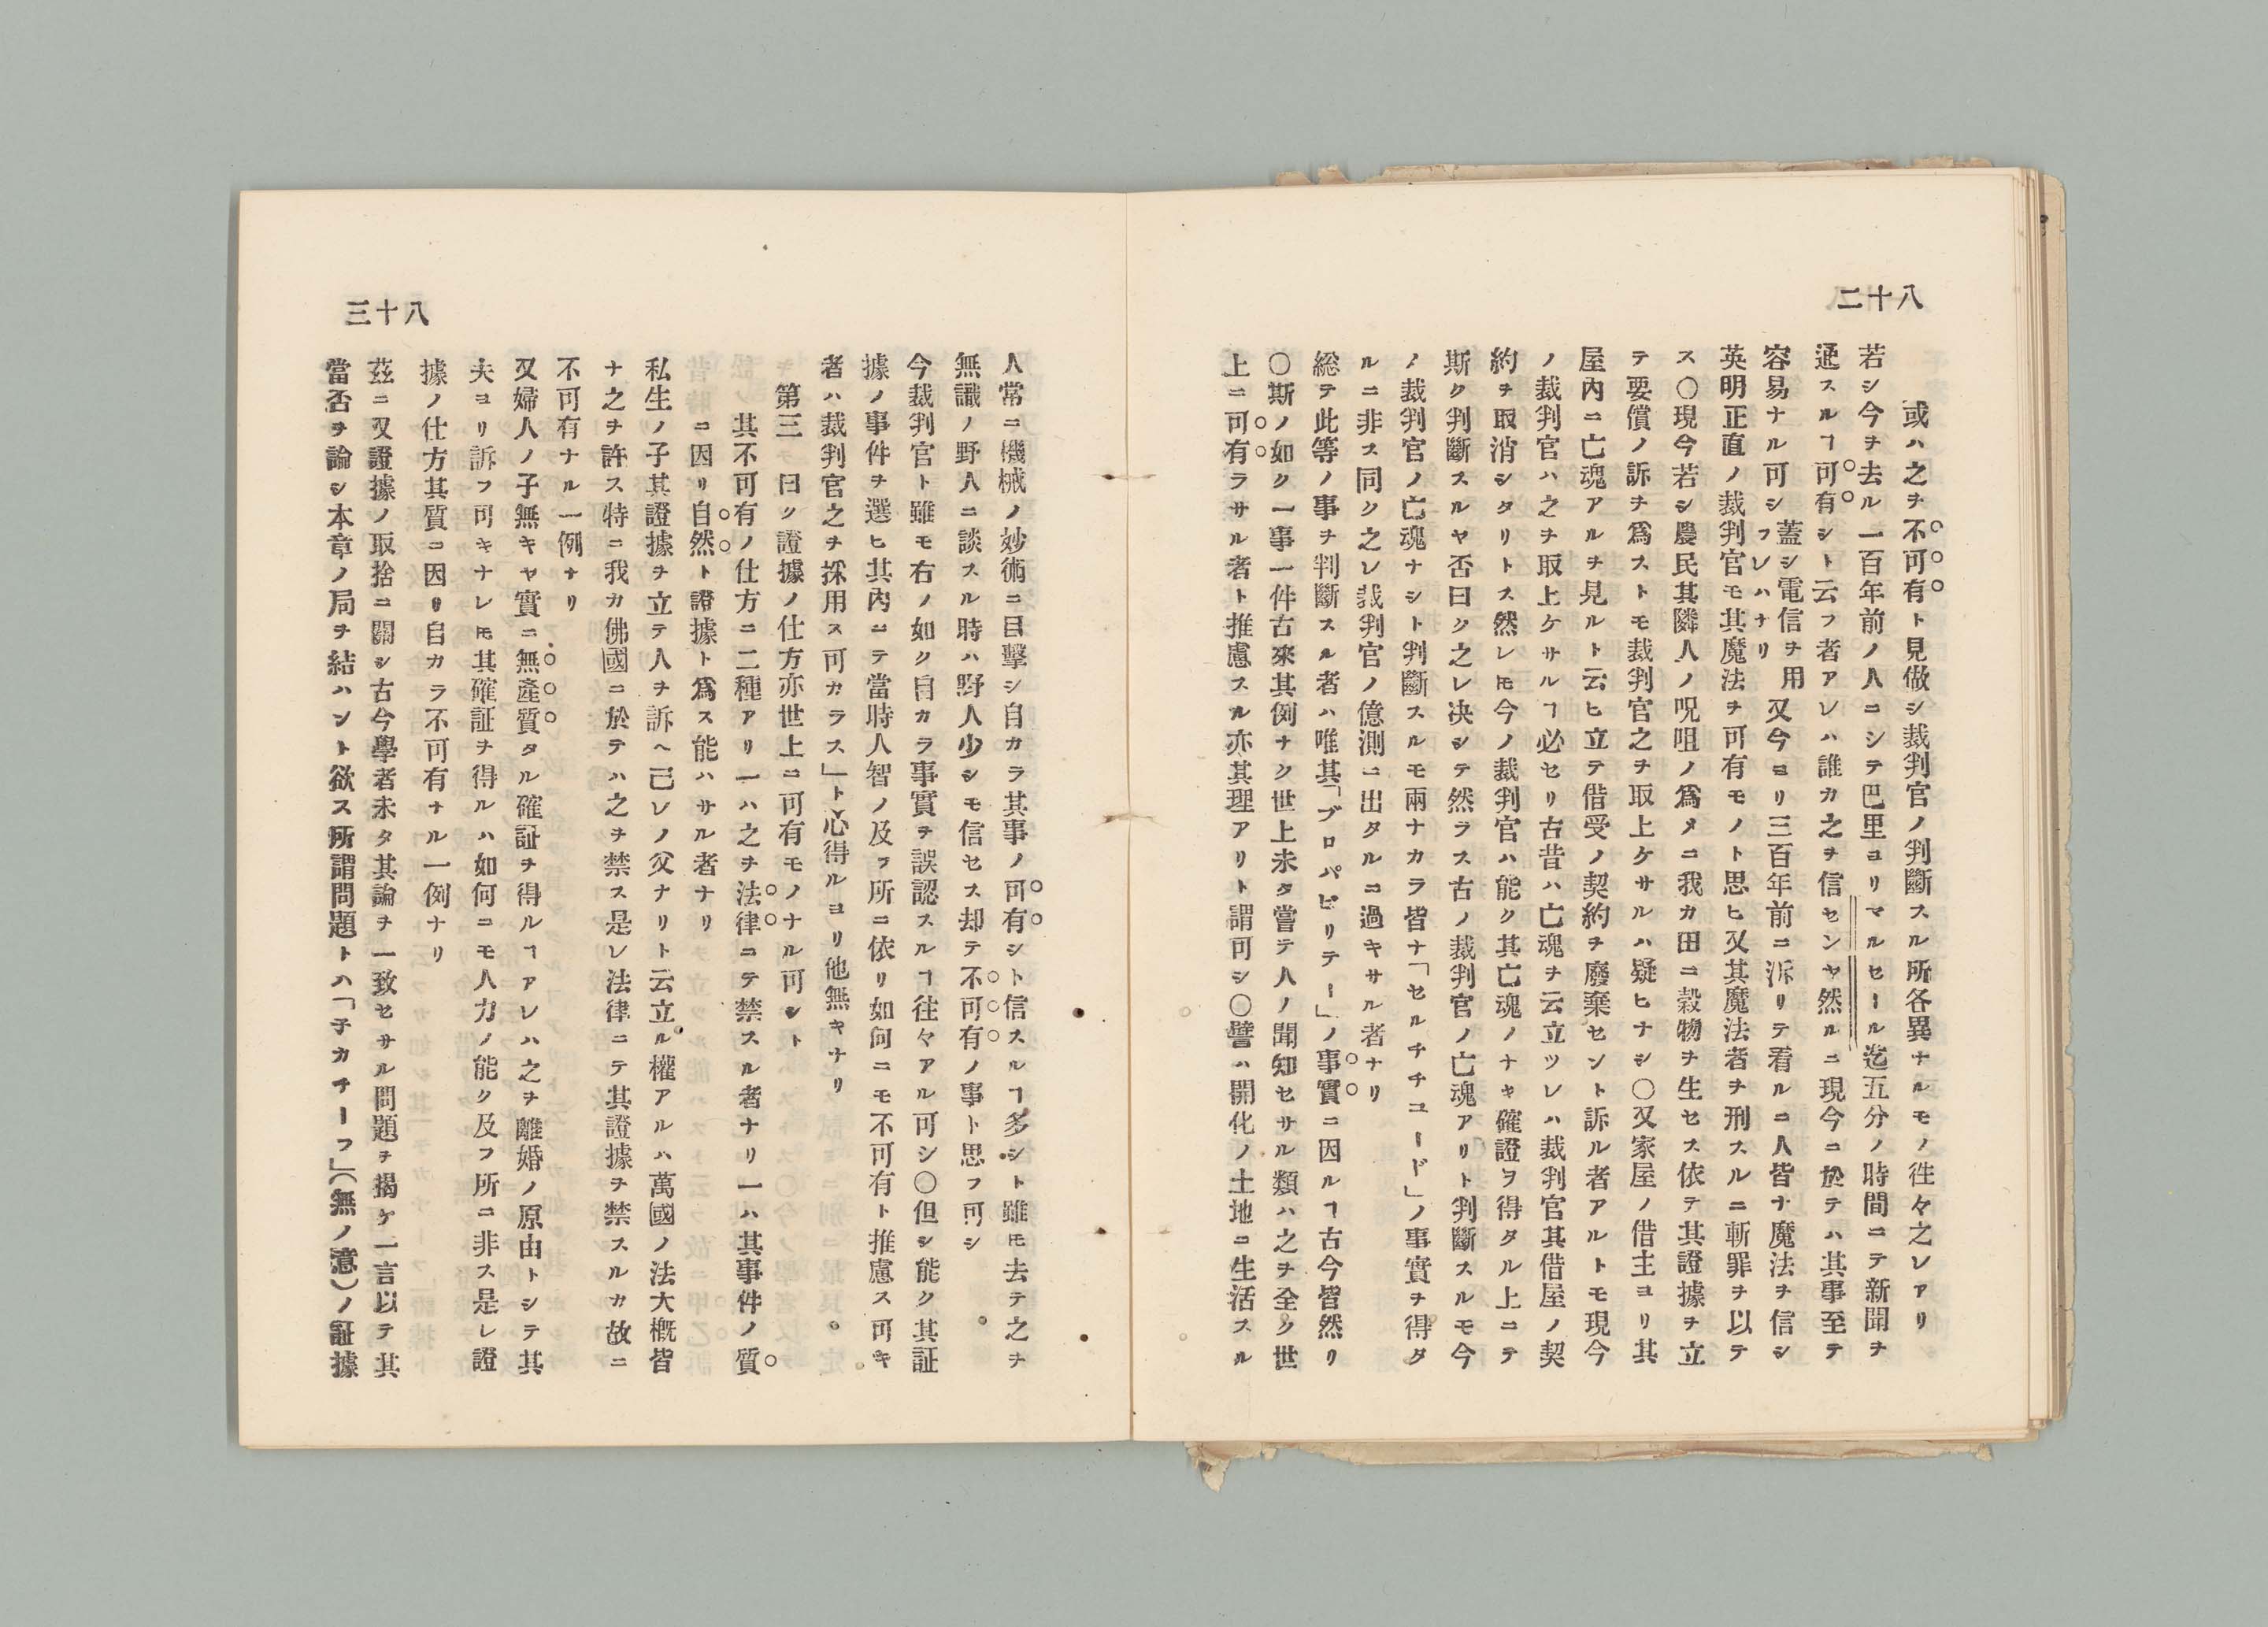 八十二
或ハ之ヲ不可有ト見做シ裁判官ノ判斷スル所各異ナルモノ徃々之レアリ
若シ今ヲ去ル一百年前ノ人ニシテ巴里ヨリマルセール迄五分ノ時間ニテ新聞ヲ
通スルヿ可有シト云フ者アレハ誰カ之ヲ信センヤ然ルニ現今ニ於テハ其事至テ
容易ナル可シ蓋シ電信ヲ用フレハナリ又今ヨリ三百年前ニ泝リテ看ルニ人皆ナ魔法ヲ信シ
英明正直ノ裁判官モ其魔法ヲ可有モノト思ヒ又其魔法者ヲ刑スルニ斬罪ヲ以テ
ス〇現今若シ農民其隣人ノ呪咀ノ爲メニ我カ田ニ穀物ヲ生セス依テ其證據ヲ立
テ要償ノ訴ヲ爲ストモ裁判官之ヲ取上ケサルハ疑ヒナシ〇又家屋ノ借主ヨリ其
屋內ニ亡魂アルヲ見ルト云ヒ立テ借受ノ契約ヲ廢棄セント訴ル者アルトモ現今
ノ裁判官ハ之ヲ取上ケサルヿ必セリ古昔ハ亡魂ヲ云立ツレハ裁判官其借屋ノ契
約ヲ取消シタリトス然レ𪜈今ノ裁判官ハ能ク其亡魂ノナキ確證ヲ得タル上ニテ
斯ク判斷スルヤ否曰ク之レ决シテ然ラス古ノ裁判官ノ亡魂アリト判斷スルモ今
ノ裁判官ノ亡魂ナシト判斷スルモ兩ナカラ皆ナ「セルチチユード」ノ事實ヲ得タ
ルニ非ス同ク之レ裁判官ノ億測ニ出タルニ過キサル者ナリ
総テ此等ノ事ヲ判斷スル者ハ唯其「ブロパビリテー」ノ事實ニ因ルヿ古今皆然リ
〇斯ノ如ク一事一件古來其例ナク世上未タ嘗テ人ノ聞知セサル類ハ之ヲ全ク世
上ニ可有ラサル者ト推慮スル亦其理アリト謂可シ〇譬ハ開化ノ土地ニ生活スル
八十三
人常ニ機械ノ妙術ニ目擊シ自カラ其事ノ可有シト信スルヿ多シト雖𪜈去テ之ヲ
無識ノ野人ニ談スル時ハ野人少シモ信セス却テ不可有ノ事ト思フ可シ
今裁判官ト雖モ右ノ如ク自カラ事實ヲ誤認スルヿ往々アル可シ〇但シ能ク其証
據ノ事件ヲ選ヒ其內ニテ當時人智ノ及フ所ニ依リ如何ニモ不可有ト推慮ス可キ
者ハ裁判官之ヲ採用ス可カラス」ト心得ルヨリ他無キナリ
第三 曰ク證據ノ仕方亦世上ニ可有モノナル可シト
其不可有ノ仕方ニ二種アリ一ハ之ヲ法律ニテ禁スル者ナリ一ハ其事件ノ質
ニ因リ自然ト證據ト爲ス能ハサル者ナリ
私生ノ子其證據ヲ立テ人ヲ訴ヘ己レノ父ナリト云立ル權アルハ萬國ノ法大概皆
ナ之ヲ許ス特ニ我カ佛國ニ於テハ之ヲ禁ス是レ法律ニテ其證據ヲ禁スルカ故ニ
不可有ナル一例ナリ
又婦人ノ子無キヤ實ニ無產質タル確証ヲ得ルヿアレハ之ヲ離婚ノ原由トシテ其
夫ヨリ訴フ可キナレ𪜈其確証ヲ得ルハ如何ニモ人力ノ能ク及フ所ニ非ス是レ證
據ノ仕方其質ニ因リ自カラ不可有ナル一例ナリ
茲ニ又證據ノ取捨ニ關シ古今學者未タ其論ヲ一致セサル問題ヲ揭ケ一言以テ其
當否ヲ論シ本章ノ局ヲ結ハント欲ス所謂問題トハ「子カチーフ」（無ノ意）ノ証據